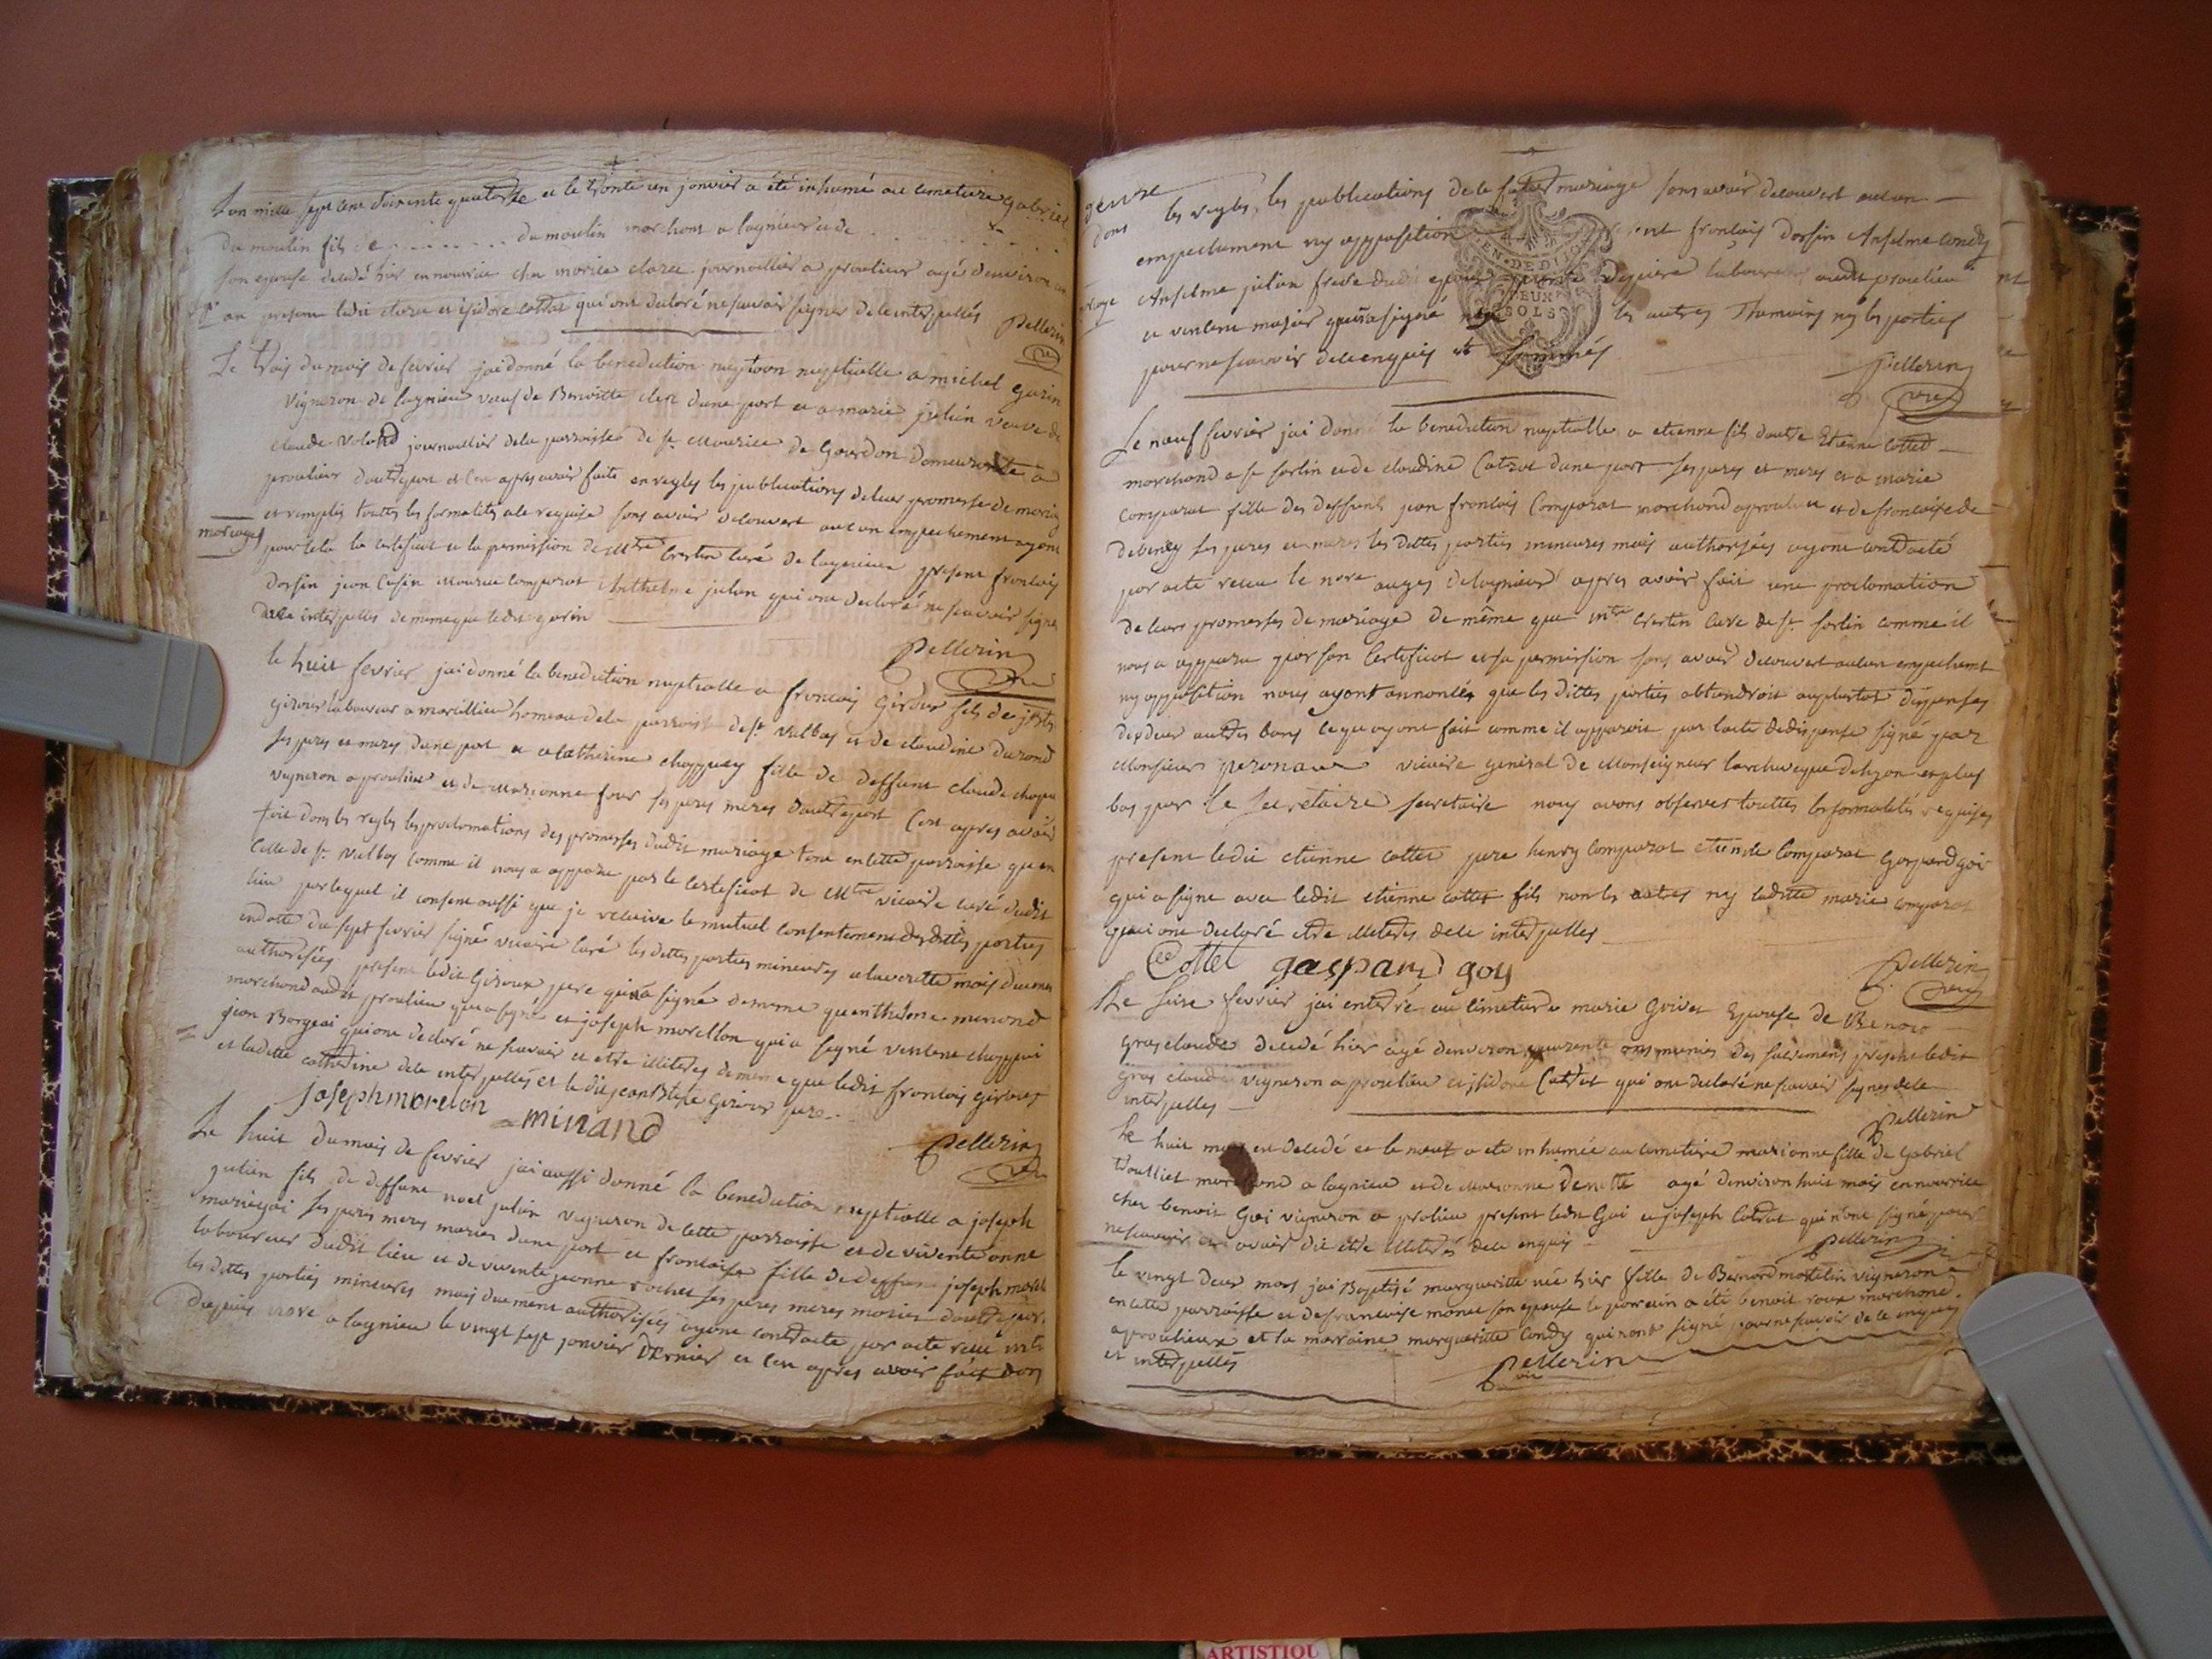 Lan mille sept cent soixante quatorze et le trente un janvier a été inhumé au cimetiere gabriel
du moulin fils de . . . . . . . . . du moulin marchant a lagnieu et de . . . . . . .
son epouse decedé hier en nourrice chez morice claree journaillier a proulieu agé denviron un
an present ledit claree et isidore cottat qui ont declaré ne savoir signer de ce interpellés Pellerin
vre
Le trois du mois de fevrier jai donné la benediction nuptialle a michel garin
vigneron de lagnieu veuf de Benoitte clerc dune part et a marie julien veuve de
claude Volond journaillier de la parroisse de st Maurice de Gourdon demeurante a
proulieu dautre part et ce apres avoir faite en regles les publications de leur promesse de mariag
et remplis touttes les formalités a ce requise sans avoir decouvert aucun empechement ayant
mariages
pour cela le certificat et la permission de Mtre Crestin curé de lagnieu present francois
dorsin jean Cusin Mourice Comparat Anthelme julian qui ont declaré ne scavoir signer
de ce interpellés de meme que ledit garin
Pellerin
vre
le huit fevrier jai donné la benediction nuptialle a francois Giroux fils de jbte
giroux laboureur a marcillieu hameau de la parroisse de st Vulbas et de claudine durand
ses peres et meres dune part et a catherine chappuey fille de deffunt claude chapuy
vigneron a proulieu et de Marianne four ses peres meres dautre part Cest apres avoir
fait dans les regles les proclamations des promesses dudit mariage tant en cette parroisse quen
Celle de st Vulbas comme il nous a apparu par le certificat de Mtre vicaire curé dudit
lieu par lequel il consent aussi que je recoive le mutuel consentement des dittes parties
en datte du sept fevrier signé vicaire curé les dittes parties mineures mais duement
authorisées present ledit Giroux pere qui na signé de meme quenthelme minand
marchand audit proulieu qui a signé et joseph morellon qui a signé venlent chappui
jean Borgeai qui ont declaré ne scavoir et etre illiterés de meme que ledit francois giroux
et laditte catherine de ce interpellés et ledit jean Btiste Giroux pere
joseph morellon
minand
Pellerin
vre
Le huit du mois de fevrier jai aussi donné la benediction nuptialle a joseph
julien fils de deffunt noel julien vigneron de cette parroisse et de vivente anne
mariegoi ses peres meres maries dune part et francoise fille de deffunt joseph morel
laboureur dudit lieu et de vivente jeanne rochet ses peres meres maries dautre part
les dittes parties mineures mais duement authorisées ayant contracté par acte receu mtre
dupuis nore a lagnieu le vingt sept janvier Dernier et ce apres avoir fait dans
les regles, les publications de le futur mariage sans avoir decouvert aucun
empechement ny opposition present francois dorsin Anselme condy
Anselme julian frere dudit epoux laboureur audit proulieu
et venlent masier qui na signé les autres Themoins ny les parties
pour ne scavoir de ce enquis et sommés
EN·DE·DIJON
DEUX
SOLS
Pellerin
vre
Le neuf fevrier jai donné la benediction nuptialle a etienne fils dautre Etienne cottet
marchand a st sorlin et de claudine Catrat dune part ses peres et meres et a marie
comparat fille des deffunts jean francois Comparat marchand a proulieu et de francoise de
debeney ses peres et meres les dittes parties mineures mais authorisées ayant contracté
par acte receu le nore auger de lagnieu apres avoir fait une proclamation
de leurs promesses de mariage de même que mtre Crestin Curé de st sorlin comme il
nous a apparu par son Certificat et sa permission sans avoir decouvert aucun empechement
ny opposition nous ayant annoncés que les dittes parties obtiendroit au plustot dispenses
des deux autres bans ce quayant fait comme il apparoit par lacte de dispense signé par
Monsieur vicaire general de Monseigneur larcheveque de lyon et plus
bas par le secretaire secretaire nous avons observes touttes les formalités requises
present ledit etienne cottet pere henry Comparat etienne Comparat Gaspard goi
qui a signe avec ledit etienne cottet fils non les autres ny laditte marie comparat
qui ont declaré etre illiterés de ce interpellés
Cottet gaspard goy
Pellerin
vre
Le seise fevrier jai enterré au cimetiere marie Goivet Epouse de Benoit
grosclaude decedé hier agé denviron quarente ans munies des sacremens present ledit
gros claude vigneron a proulieu et isidore Catrat qui ont declaré ne scavoir signer de ce
interpelles
Pellerin
Le huit mars est decedé et le neuf a eté inhumée au cimetiere marianne fille de Gabriel
trolliet marchand a lagnieu et de Marianne Denotte agé denviron huit mois en nourrice
chez benoit Goi vigneron a prolieu present ledit Goi et joseph Catrat qui nont signé pour
ne scavoir et avoir dit etre illiterés de ce enquis
Pellerin
le vingt deux mars jai Baptisé margueritte née hier fille de Bernard mortelin vigneron
en cette parroisse et de francoise monet son epouse le parrain a eté benoit roux marchand
a proulieux et la marraine margueritte Condy qui nont signé pour ne scavoir de ce enquis
et interpellés
Pellerin
vre
ARTISTIQU